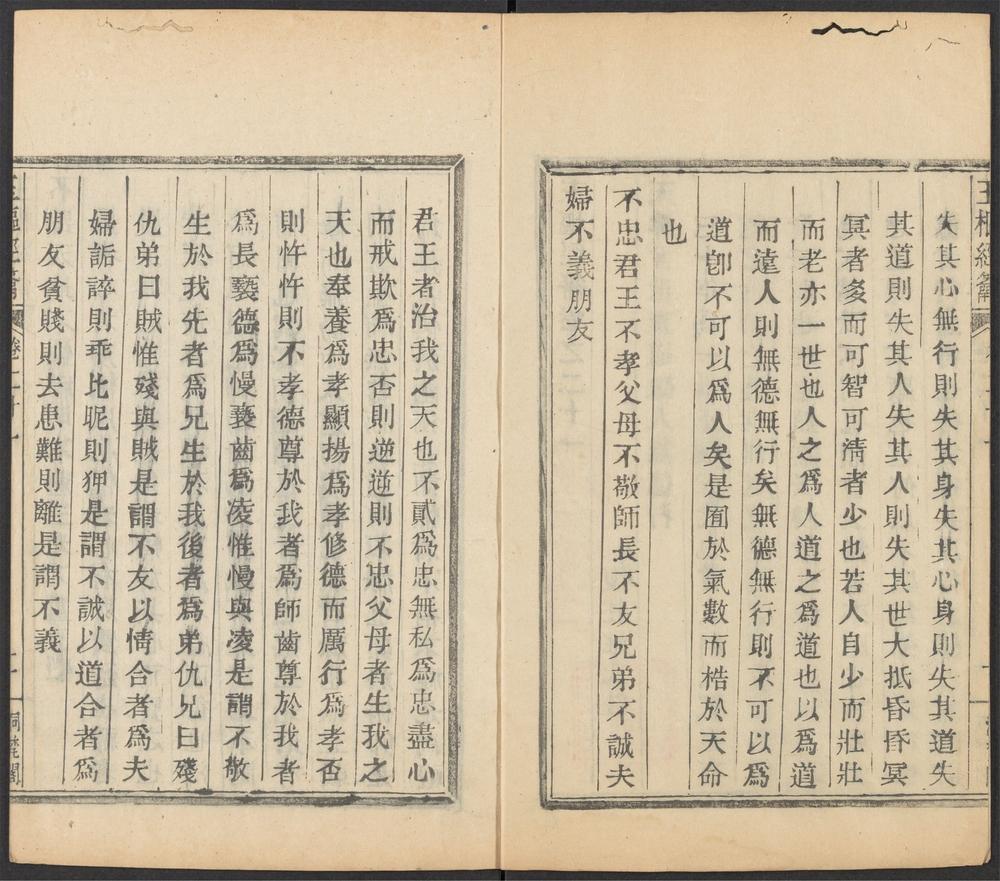 玉樞經籥
失其心無行則失其身失其心身則失其道失
其道則失其人失其人則失其世大抵昏昏冥
冥者多而可智可淸者少也若人自少而壯壯
而老亦一世也人之爲人道之爲道也以爲道
而遠人則無德無行矣無德無行則不可以爲
道卽不可以爲人矣是囿於氣數而梏於天命
也
不忠君王不孝父母不敬師長不友兄弟不誠夫
婦不義朋友
君王者治我之天也不貳爲忠無私爲忠盡心
而戒欺爲忠否則逆逆則不忠父母者生我之
天也奉養爲孝顯揚爲孝修德而厲行爲孝否
則忤忤則不孝德尊於我者爲師齒尊於我者
爲長褻德爲慢褻齒爲凌惟慢與凌是謂不敬
生於我先者爲兄生於我後者爲弟仇兄曰殘
仇弟曰賊惟殘與賊是謂不友以情合者爲夫
婦詬誶則乖比昵則狎是謂不誠以道合者爲
朋友貧賤則去患難則離是謂不義
玉樞經籥